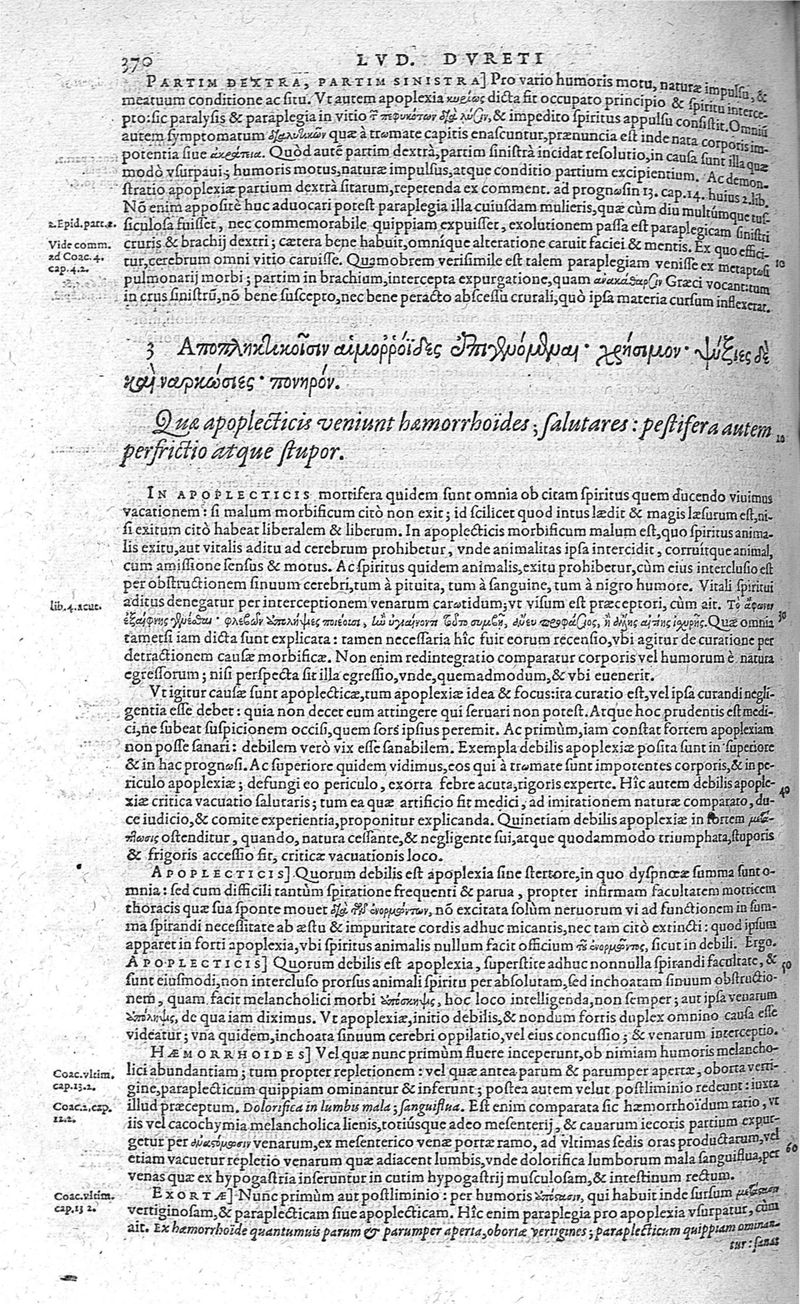 370 LVD. DVRETI
PARTIM DEXTRA, PARTIM SINISTRA] Pro vario humoris motu, naturæ impulsu, &
meatuum conditione ac situ. Vt autem apoplexia κυρίως dicta fit occupato principio & spiritu interce-
pto: sic paralysis & paraplegia in vitio & impedito spiritus appulsu consistit. Omniũ
autem symptomatum quæ à τρώματε capitis enascuntur, prænuncia est inde nata corporis im-
potentia siue ἀκράτεια. Quòd autẽ partim dextrâ, partim sinistrâ incidat resolutio, in causa sunt illa quæ
modò vsurpaui; humoris motus, naturæ impulsus, atque conditio partium excipientium. Ac demon-
stratio apoplexiæ partium dextrâ sitarum, repetenda ex comment. ad prognosin 13. cap. 14. huius 2. lib.
Nõ enim appositè huc aduocari potest paraplegia illa cuiusdam mulieris, quæ cùm diu multúmque tus-
2. Epid. part. 2. siculosa fuisset, nec commemorabile quippiam expuisset, exolutionem passa est paraplegicam sinistri
Vide comm. cruris & brachij dextri; cætera bene habuit, omníque alteratione caruit faciei & mentis. Ex quo effici-
ad Coac. 4. tur, cerebrum omni vitio caruisse. Quamobrem verisimile est talem paraplegiam venisse ex metaptosi 10
cap. 4. 2. pulmonarij morbi; partim in brachium, intercepta expurgatione, quam ἀνακάθαρσιν Græci vocant: tum
in crus sinistrũ, nõ bene suscepto, nec bene peracto abscessu crurali, quò ipsa materia cursum inflexerat.
3 Αποπληκτικοῖσιν αἱμοῤῥοΐδες ἐπιγενόμεναι · χρήσιμον · ψύξιες δὲ
καὶ ναρκώσιες · πονηρόν.
Quæ apoplecticis veniunt hæmorrhoïdes; salutares: pestifera autem 20
perfrictio atque stupor.
IN APOPLECTICIS mortifera quidem sunt omnia ob citam spiritus quem ducendo viuimus
vacationem: si malum morbificum citò non exit; id scilicet quod intus lædit & magis læsurum est, ni-
si exitum citò habeat liberalem & liberum. In apoplecticis morbificum malum est, quo spiritus anima-
lis exitu, aut vitalis aditu ad cerebrum prohibetur, vnde animalitas ipsa intercidit, corruítque animal,
cum amissione sensus & motus. Ac spiritus quidem animalis, exitu prohibetur, cùm eius interclusio est
per obstructionem sinuum cerebri, tum à pituita, tum à sanguine, tum à nigro humore. Vitali spiritui
lib. 4. acut. aditus denegatur per interceptionem venarum carωtidum; vt visum est præceptori, cùm ait. Τὸ ἄφωνον
ἐξαίφνης γενέσθαι · φλεβῶν ἀπολήψιες ποιέουσι, ἢν ὑγιαίνοντι τόδε συμβῇ, ἄνευ προφάσιος, ἢ ἄλλης αἰτίης ἰσχυρῆς. Quæ omnia 30
tametsi iam dicta sunt explicata: tamen necessaria hîc fuit eorum recensio, vbi agitur de curatione per
detractionem causæ morbificæ. Non enim redintegratio comparatur corporis vel humorum è natura
egressorum; nisi perspecta sit illa egressio, vnde, quemadmodum, & vbi euenerit.
Vt igitur causæ sunt apoplecticæ, tum apoplexiæ idea & focus: ita curatio est, vel ipsa curandi negli-
gentia esse debet: quia non decet eum attingere qui seruari non potest. Atque hoc prudentis est medi-
ci, ne subeat suspicionem occisi, quem sors ipsius peremit. Ac primùm, iam constat fortem apoplexiam
non posse sanari: debilem verò vix esse sanabilem. Exempla debilis apoplexiæ posita sunt in superiore
& in hac prognωsi. Ac superiore quidem vidimus, eos qui à τrωmate sunt impotentes corporis, & in pe-
riculo apoplexiæ; defungi eo periculo, exorta febre acuta, rigoris experte. Hîc autem debilis apople-
xiæ critica vacuatio salutaris; tum ea quæ artificio fit medici, ad imitationem naturæ comparato, du- 40
ce iudicio, & comite experientia, proponitur explicanda. Quinetiam debilis apoplexiæ in fortem μετά-
πτωσις ostenditur, quando, natura cessante, & negligente sui, atque quodammodo triumphata, stuporis
& frigoris accessio fit, criticæ vacuationis loco.
APOPLECTICIS] Quorum debilis est apoplexia sine stertore, in quo dyspnœæ summa sunt o-
mnia: sed cum difficili tantùm spiratione frequenti & parua, propter infirmam facultatem motricem
thoracis quæ sua sponte mouet nõ excitata solùm neruorum vi ad functionem in sum-
ma spirandi necessitate ab æstu & impuritate cordis adhuc micantis, nec tam citò extincti: quod ipsum
apparet in forti apoplexia, vbi spiritus animalis nullum facit officium sicut in debili. Ergo.
APOPLECTICIS] Quorum debilis est apoplexia, superstite adhuc nonnulla spirandi facultate, & 50
sunt eiusmodi, non intercluso prorsus animali spiritu per absolutam, sed inchoatam sinuum obstructio-
nem, quam facit melancholici morbi ἀπόσκηψις, hoc loco intelligenda, non semper; aut ipsa venarum
ἀπόληψις, de qua iam diximus. Vt apoplexiæ, initio debilis, & nondum fortis duplex omnino causa esse
videatur; vna quidem, inchoata sinuum cerebri oppilatio, vel eius concussio; & venarum interceptio.
HÆMORRHOIDES] Vel quæ nunc primùm fluere inceperunt, ob nimiam humoris melancho-
Coac. vltim. lici abundantiam; tum propter repletionem: vel quæ antea parum & parumper apertæ, oborta verti-
cap. 13. 2. gine, paraplecticum quippiam ominantur & inferunt; postea autem velut postliminio redeunt: iuxta
Coac. 2. cap. illud præceptum. Dolorifica in lumbis mala; sanguiflua. Est enim comparata sic hæmorrhoïdum ratio, vt
12. 2. iis vel cacochymia melancholica lienis, totiúsque adeo mesenterij, & cauarum iecoris partium expur-
getur per ἀναστόμωσιν venarum, ex mesenterico venæ portæ ramo, ad vltimas sedis oras productarum, vel 60
etiam vacuetur repletio venarum quæ adiacent lumbis, vnde dolorifica lumborum mala sanguiflua, per
venas quæ ex hypogastria inseruntur in cutim hypogastrij musculosam, & intestinum rectum.
Coac. vltim. EXORTÆ] Nunc primùm aut postliminio: per humoris qui habuit inde sursum
cap. 13 2. vertiginosam, & paraplecticam siue apoplecticam. Hîc enim paraplegia pro apoplexia vsurpatur, cùm
ait. Ex hæmorrhoïde quantumuis parum & parumper aperta, obortæ vertigines; paraplecticum quippiam ominan-
tur: sanat